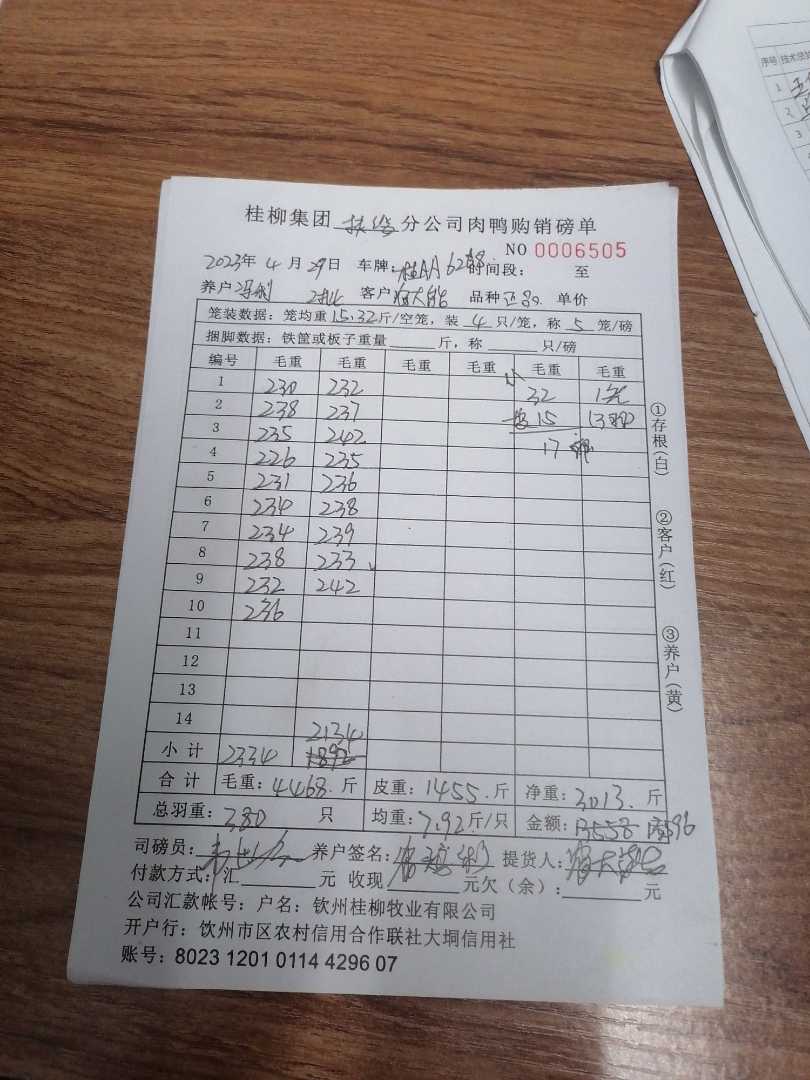 桂柳集团 扶绥 分公司肉鸭购销磅单
NO 0006505
2023年 4 月 29日 车牌: 时间段: 至
养户 客户 品种 单价
笼装数据: 笼均重 15.32 斤/空笼, 装 4 只/笼, 称 5 笼/磅
捆脚数据: 铁筐或板子重量 斤, 称 只/磅
编号 毛重 毛重 毛重 毛重 毛重 毛重
1 230 232 32
2 238 237 15
3 235 242 17
4 226 235
5 231 236
6 234 238
7 234 239
8 238 233
9 232 242
10 236
11
12
13
14
2134
小计 2334 1892
合计 毛重: 4468. 斤 皮重: 1455. 斤 净重: 3013. 斤
总羽重: 380 只 均重: 7.92 斤/只 金额: 13558
司磅员: 养户签名: 提货人:
付款方式: 汇 元 收现 元欠(余): 元
公司汇款帐号: 户名: 钦州桂柳牧业有限公司
开户行: 钦州市区农村信用合作联社大垌信用社
账号: 8023 1201 0114 4296 07
①存根(白)
②客户(红)
③养户(黄)
序号
1
2
3